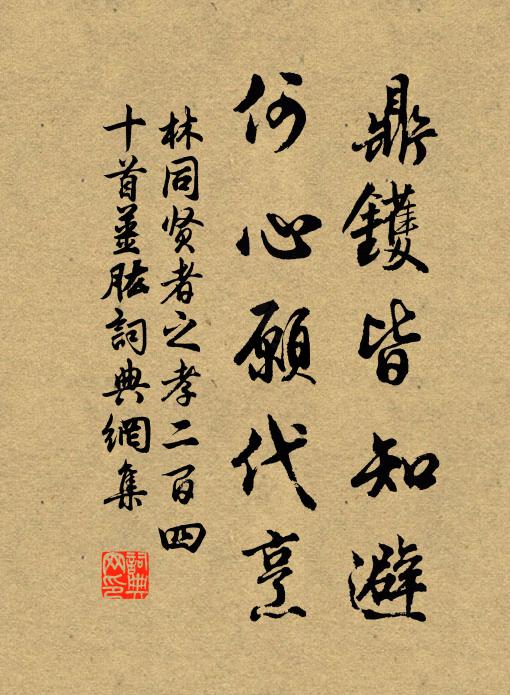 鼎鑊皆知避
何心願代烹
林同贤者之孝二百四
十首姜肱詞典網集
詞典网印